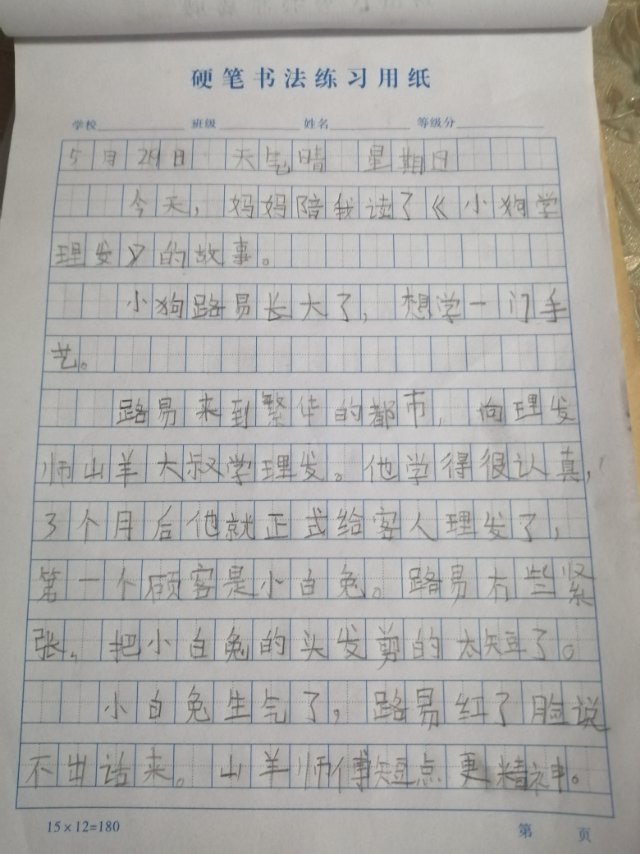 硬笔书法练习用纸
学校 班级 姓名 等级分
5月29日 天气晴 星期日
今天，妈妈陪我读了《小狗学
理发》的故事。
小狗路易长大了，想学一门手
艺。
路易来到繁华的都市，向理发
师山羊大叔学理发。他学得很认真，
3个月后他就正式给客人理发了，
第一个顾客是小白兔。路易有些紧
张，把小白兔的头发剪的太短了。
小白兔生气了，路易红了脸说
不出话来。山羊师傅短点更精神。
15×12=180
第 页